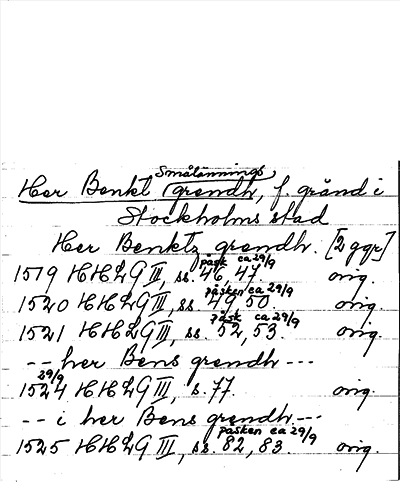 Smålännings
Her Benkt (grendh, f. gränd i
Stockholms stad
Her Benktz grendh. [2 ggr]
påsk ca 29/9
1519 HHLG III, ss. 46, 47. orig.
påsken ca 29/9
1520 HHLG III, ss. 49, 50. orig.
påsk ca 29/9
1521 HHLG III, ss. 52, 53. orig.
-- her Bens grendh ---
29/9
1524 HHLG III, s. 77. orig.
-- i her Bens grendh. ---
påsken ca 29/9
1525 HHLG III, ss. 82, 83. orig.